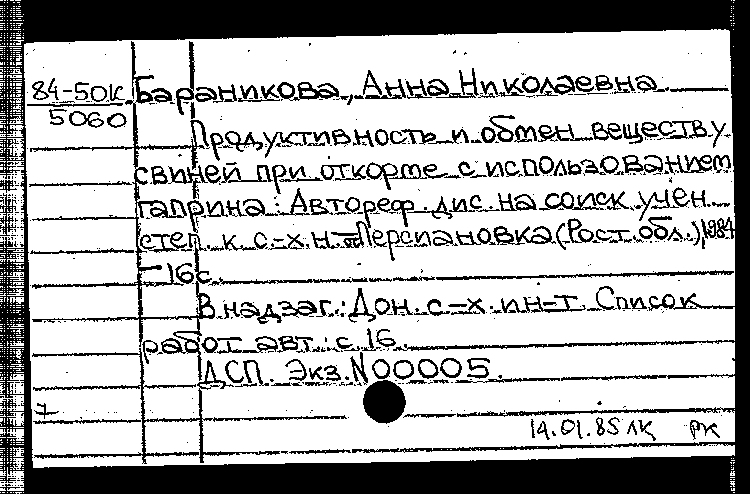 84-50К
5060
Бараникова, Анна Николаевна
Продуктивность и обмен веществ у
свиней при откорме с использованием
гаприна: Автореф. дис. на соиск. учен.
степ. к. с.-х. н. - Персиановка (Рост. обл.), 1984
- 16 с.
В надзаг.: Дон. с.-х. ин-т. Список
работ авт.: с. 16.
ДСП. Экз. N 00005.
7
14.01.85 лк рк